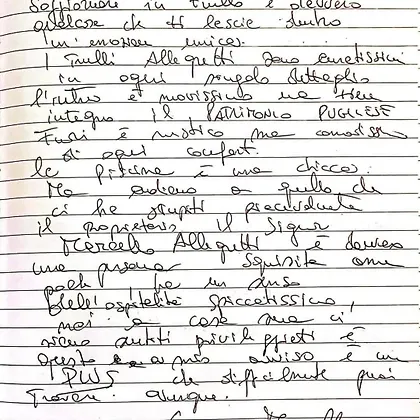 Soggiornare in Trullo è davvero
qualcosa che ti lascia dentro
un'emozione unica.
I Trulli Allegretti sono curatissimi
in ogni singolo dettaglio
l'interno è nuovissimo ma tiene
integro il PATRIMONIO PUGLIESE
Fuori è rustico ma
di ogni confort.
la piscina è una chicca.
Ma andiamo a quello che
ci ha stupiti
il proprietario il Signor
Marcello Allegretti è davvero
una persona squisita come
poche, ha un senso
dell'ospitalità spiccatissimo,
noi a casa sua ci
siamo sentiti privilegiati e
questo è a mio avviso è un
PLUS che difficilmente puoi
trovare ovunque.